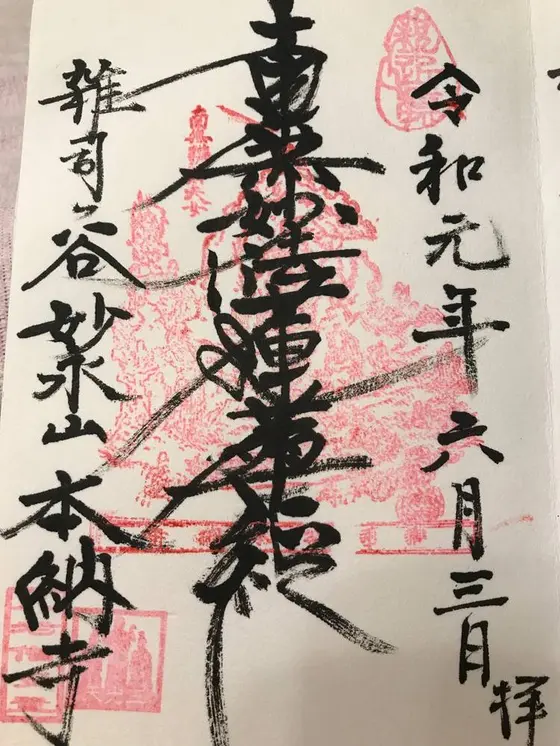 令和元年六月三日
拝
南無妙法蓮華経
雑司ヶ谷妙永山本納寺